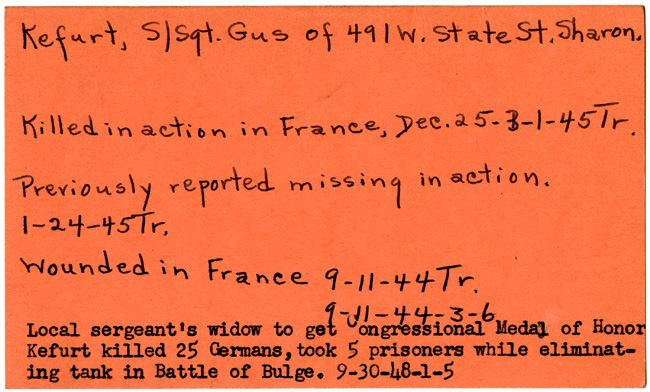 Kefurt, S/Sgt. Gus of 491 W. State St, Sharon.
Killed in action in France, Dec. 25-3-1-45 Tr.
Previously reported missing in action.
1-24-45 Tr.
Wounded in France 9-11-44 Tr.
9-11-44-3-6
Local sergeant's widow to get Congressional Medal of Honor
Kefurt killed 25 Germans, took 5 prisoners while eliminat-
ing tank in Battle of Bulge. 9-30-48-1-5